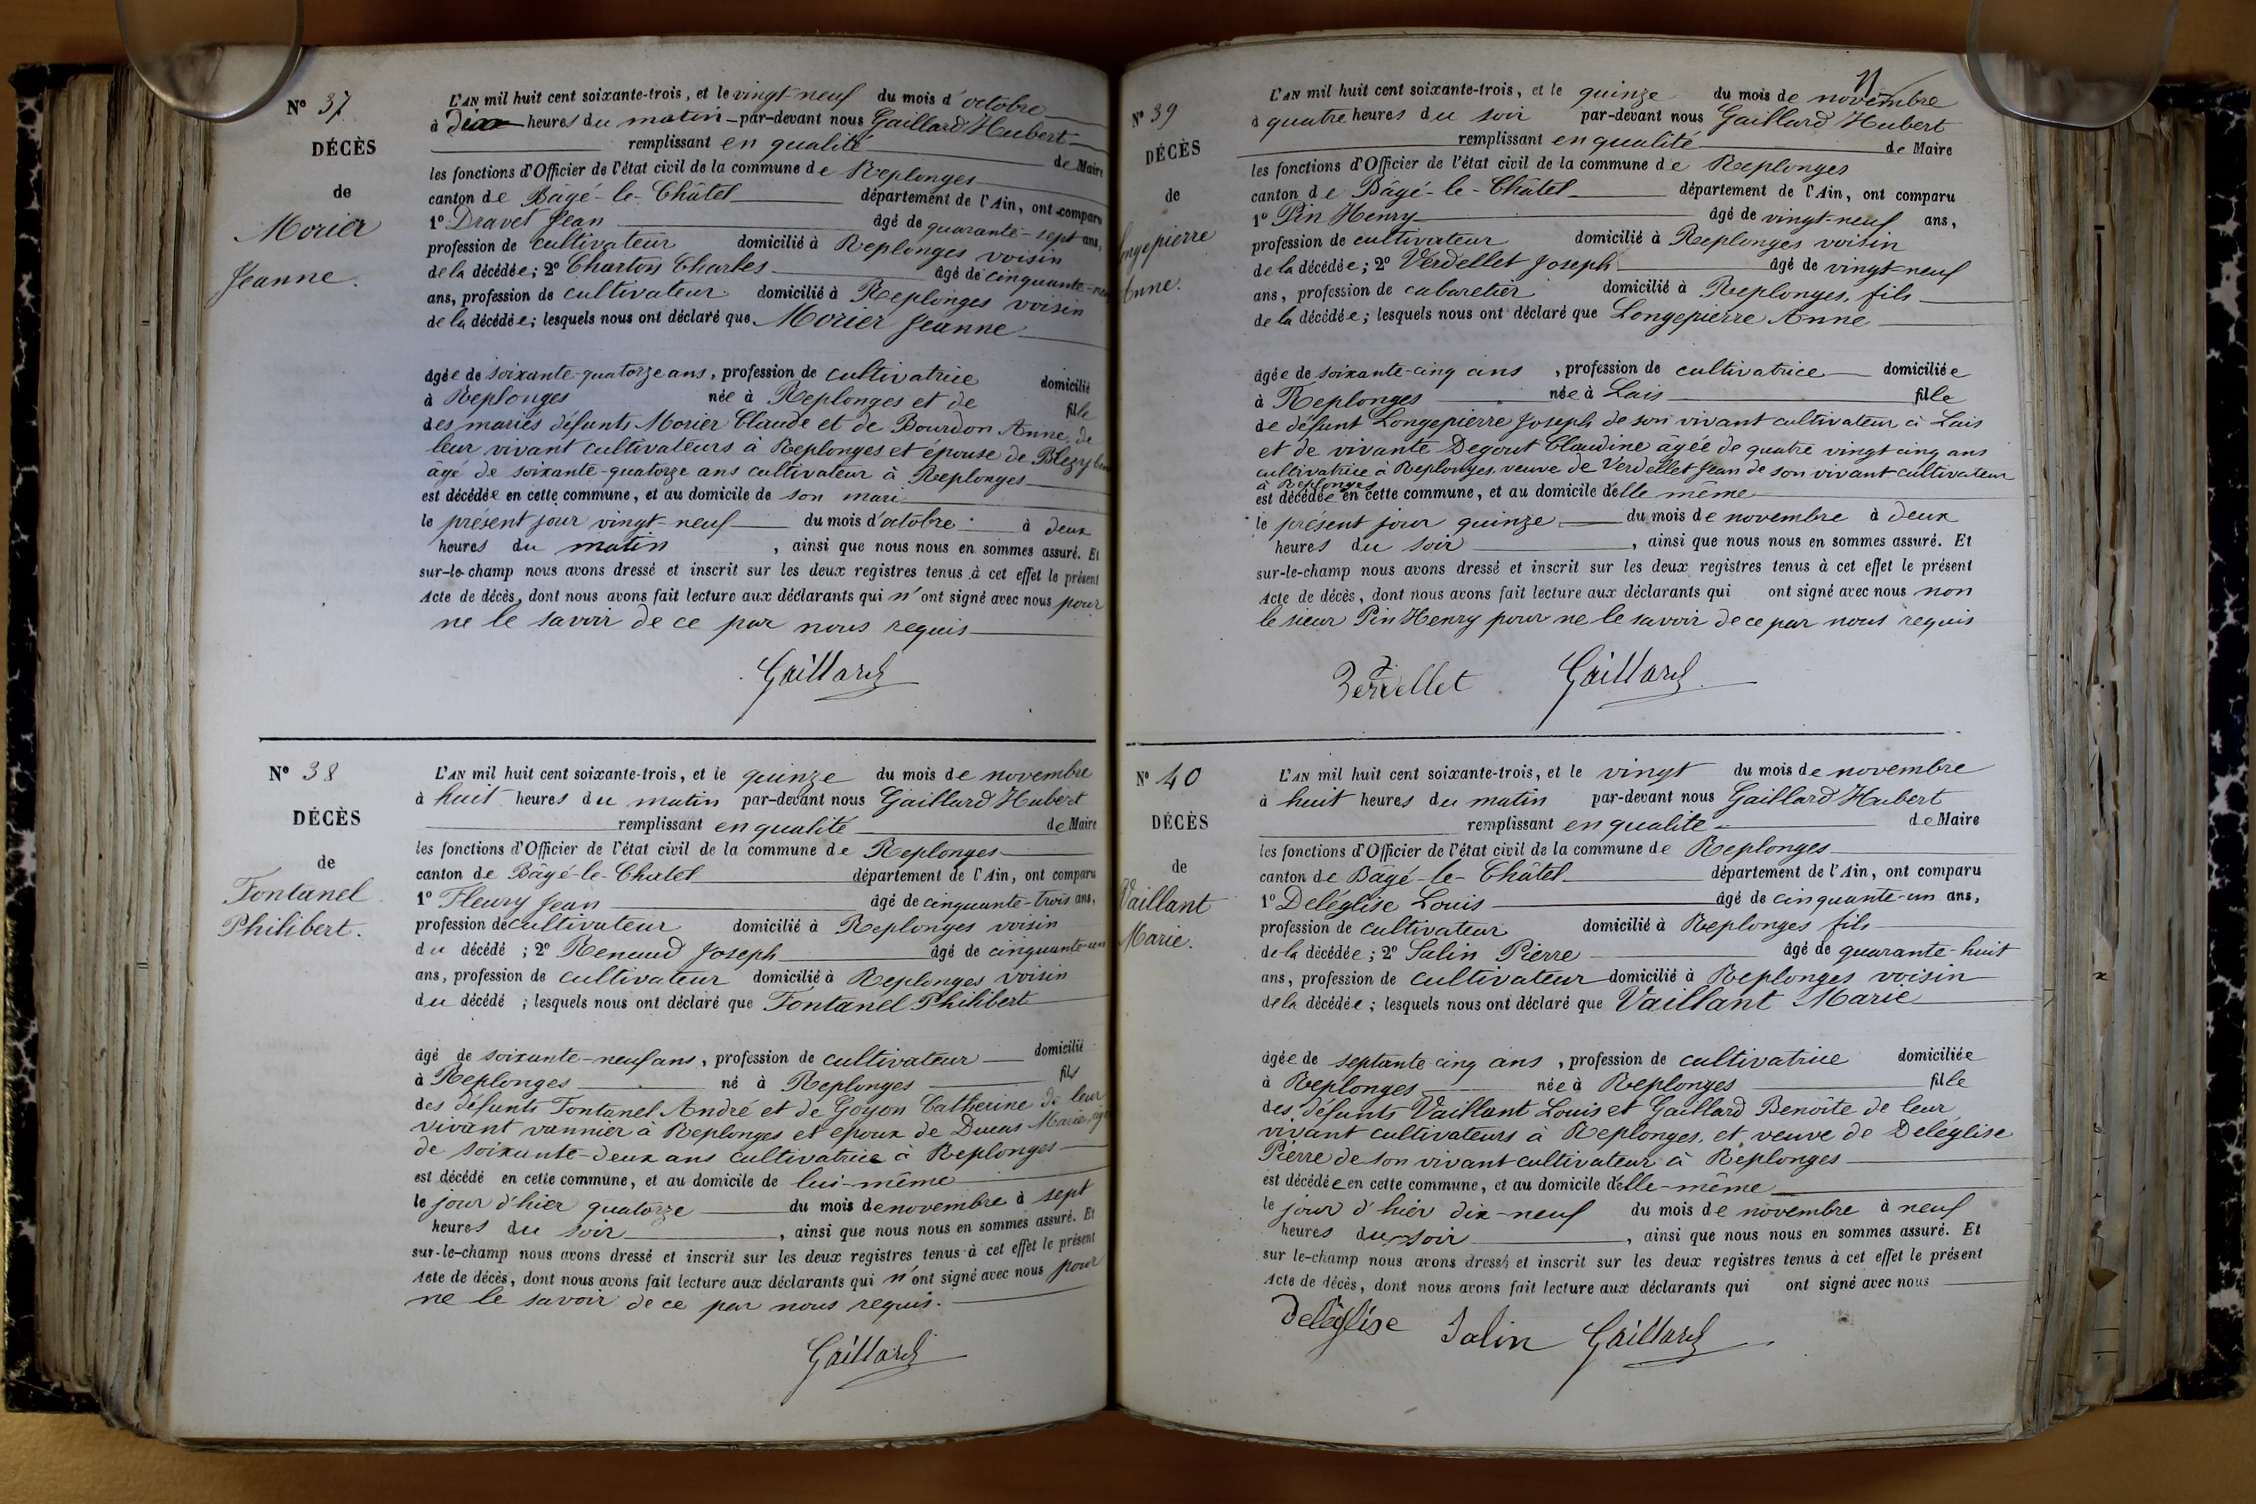 N° 37
DÉCÈS
de
Morier
Jeanne.
L'AN mil huit cent soixante-trois, et le vingt-neuf du mois d'octobre
à dix heures du matin par-devant nous Gaillard Hubert
remplissant en qualité de Maire
les fonctions d'Officier de l'état civil de la commune de Replonges
canton de Bâgé-le-Châtel département de l'Ain, ont comparu
1° Dravet Jean âgé de quarante-sept ans,
profession de cultivateur domicilié à Replonges voisin
de la décédée; 2° Charton Charles âgé de cinquante-
ans, profession de cultivateur domicilié à Replonges voisin
de la décédée; lesquels nous ont déclaré que Morier Jeanne
âgée de soixante-quatorze ans, profession de cultivatrice domicilié
à Replonges née à Replonges et de fille
des mariés défunts Morier Claude et de Bourdon Anne, de
leur vivant cultivateurs à Replonges et épouse de Blézy
âgé de soixante-quatorze ans cultivateur à Replonges
est décédée en cette commune, et au domicile de son mari
le présent jour vingt-neuf du mois d'octobre à deux
heures du matin, ainsi que nous nous en sommes assuré. Et
sur-le-champ nous avons dressé et inscrit sur les deux registres tenus à cet effet le présent
Acte de décès, dont nous avons fait lecture aux déclarants qui n'ont signé avec nous pour
ne le savoir de ce par nous requis
Gaillard
N° 38
DÉCÈS
de
Fontanel
Philibert.
L'AN mil huit cent soixante-trois, et le quinze du mois de novembre
à huit heures du matin par-devant nous Gaillard Hubert
remplissant en qualité de Maire
les fonctions d'Officier de l'état civil de la commune de Replonges
canton de Bâgé-le-Chatel département de l'Ain, ont comparu
1° Fleury Jean âgé de cinquante-trois ans,
profession de cultivateur domicilié à Replonges voisin
du décédé ; 2° Renaud Joseph âgé de cinquante-un
ans, profession de cultivateur domicilié à Replonges voisin
du décédé ; lesquels nous ont déclaré que Fontanel Philibert
âgé de soixante-neuf ans, profession de cultivateur domicilié
à Replonges né à Replonges fils
des défunts Fontanel André et de Goyon Catherine de leur
vivant vannier à Replonges et époux de Ducas Marie
de soixante-deux ans cultivatrice à Replonges
est décédé en cette commune, et au domicile de lui-même
le jour d'hier quatorze du mois de novembre à sept
heures du soir, ainsi que nous nous en sommes assuré. Et
sur-le-champ nous avons dressé et inscrit sur les deux registres tenus à cet effet le présent
Acte de décès, dont nous avons fait lecture aux déclarants qui n'ont signé avec nous pour
ne le savoir de ce par nous requis.
Gaillard
N° 39
DÉCÈS
de
ongepierre
Anne.
L'AN mil huit cent soixante-trois, et le quinze du mois de novembre
à quatre heures du soir par-devant nous Gaillard Hubert
remplissant en qualité de Maire
les fonctions d'Officier de l'état civil de la commune de Replonges
canton de Bâgé-le-Châtel département de l'Ain, ont comparu
1° Pin Henry âgé de vingt-neuf ans,
profession de cultivateur domicilié à Replonges voisin
de la décédée; 2° Verdellet Joseph âgé de vingt-neuf
ans, profession de cabaretier domicilié à Replonges, fils
de la décédée; lesquels nous ont déclaré que Longepierre Anne
âgée de soixante-cinq ans, profession de cultivatrice domiciliée
à Replonges née à Lais fille
de défunt Longepierre Joseph de son vivant cultivateur à Lais
et de vivante Degout Claudine âgée de quatre vingt cinq ans
cultivatrice à Replonges, veuve de Verdellet Jean de son vivant cultivateur
à Replonges
est décédée en cette commune, et au domicile d'elle même
le présent jour quinze du mois de novembre à deux
heures du soir, ainsi que nous nous en sommes assuré. Et
sur-le-champ nous avons dressé et inscrit sur les deux registres tenus à cet effet le présent
Acte de décès, dont nous avons fait lecture aux déclarants qui ont signé avec nous non
le sieur Pin Henry pour ne le savoir de ce par nous requis
Verdellet Gaillard
N° 40
DÉCÈS
de
Vaillant
Marie.
L'AN mil huit cent soixante-trois, et le vingt du mois de novembre
à huit heures du matin par-devant nous Gaillard Hubert
remplissant en qualité de Maire
les fonctions d'Officier de l'état civil de la commune de Replonges
canton de Bâgé-le-Châtel département de l'Ain, ont comparu
1° Deléglise Louis âgé de cinquante-un ans,
profession de cultivateur domicilié à Replonges fils
de la décédée; 2° Salin Pierre âgé de quarante-huit
ans, profession de cultivateur domicilié à Replonges voisin
de la décédée; lesquels nous ont déclaré que Vaillant Marie
âgée de septante cinq ans, profession de cultivatrice domiciliée
à Replonges née à Replonges fille
des défunts Vaillant Louis et Gaillard Benoîte de leur
vivant cultivateurs à Replonges, et veuve de Deléglise
Pierre de son vivant cultivateur à Replonges
est décédée en cette commune, et au domicile d'elle-même
le jour d'hier dix-neuf du mois de novembre à neuf
heures du soir, ainsi que nous nous en sommes assuré. Et
sur le-champ nous avons dressé et inscrit sur les deux registres tenus à cet effet le présent
Acte de décès, dont nous avons fait lecture aux déclarants qui ont signé avec nous
Deléglise Salin Gaillard